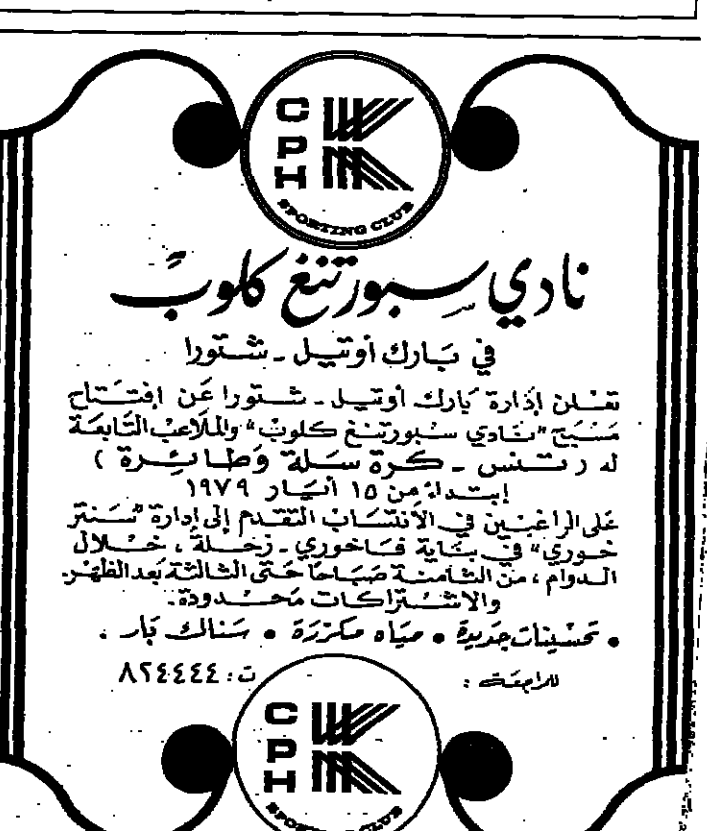 CPH
SPORTING CLUB
نادي سبورتنغ كلوب
في بارك أوتيل - شتورا
تعلن إدارة بارك أوتيل - شتورا عن افتتاح
مسبح "نادي سبورتنغ كلوب" والملاعب التابعة
له (تنس - كرة سلة وطائرة)
إبتداءً من ١٥ أيار ١٩٧٩
على الراغبين في الانتساب التقدم إلى إدارة "سنتر
خوري" في بناية فاخوري - زحلة، خلال
الدوام، من الثامنة صباحًا حتى الثالثة بعد الظهر.
والاشتراكات محدودة.
• تحسينات جديدة • مياه مكررة • سناك بار.
للمراجعة: ت: ٨٢٤٤٤٤
CPH
SPORTING CLUB